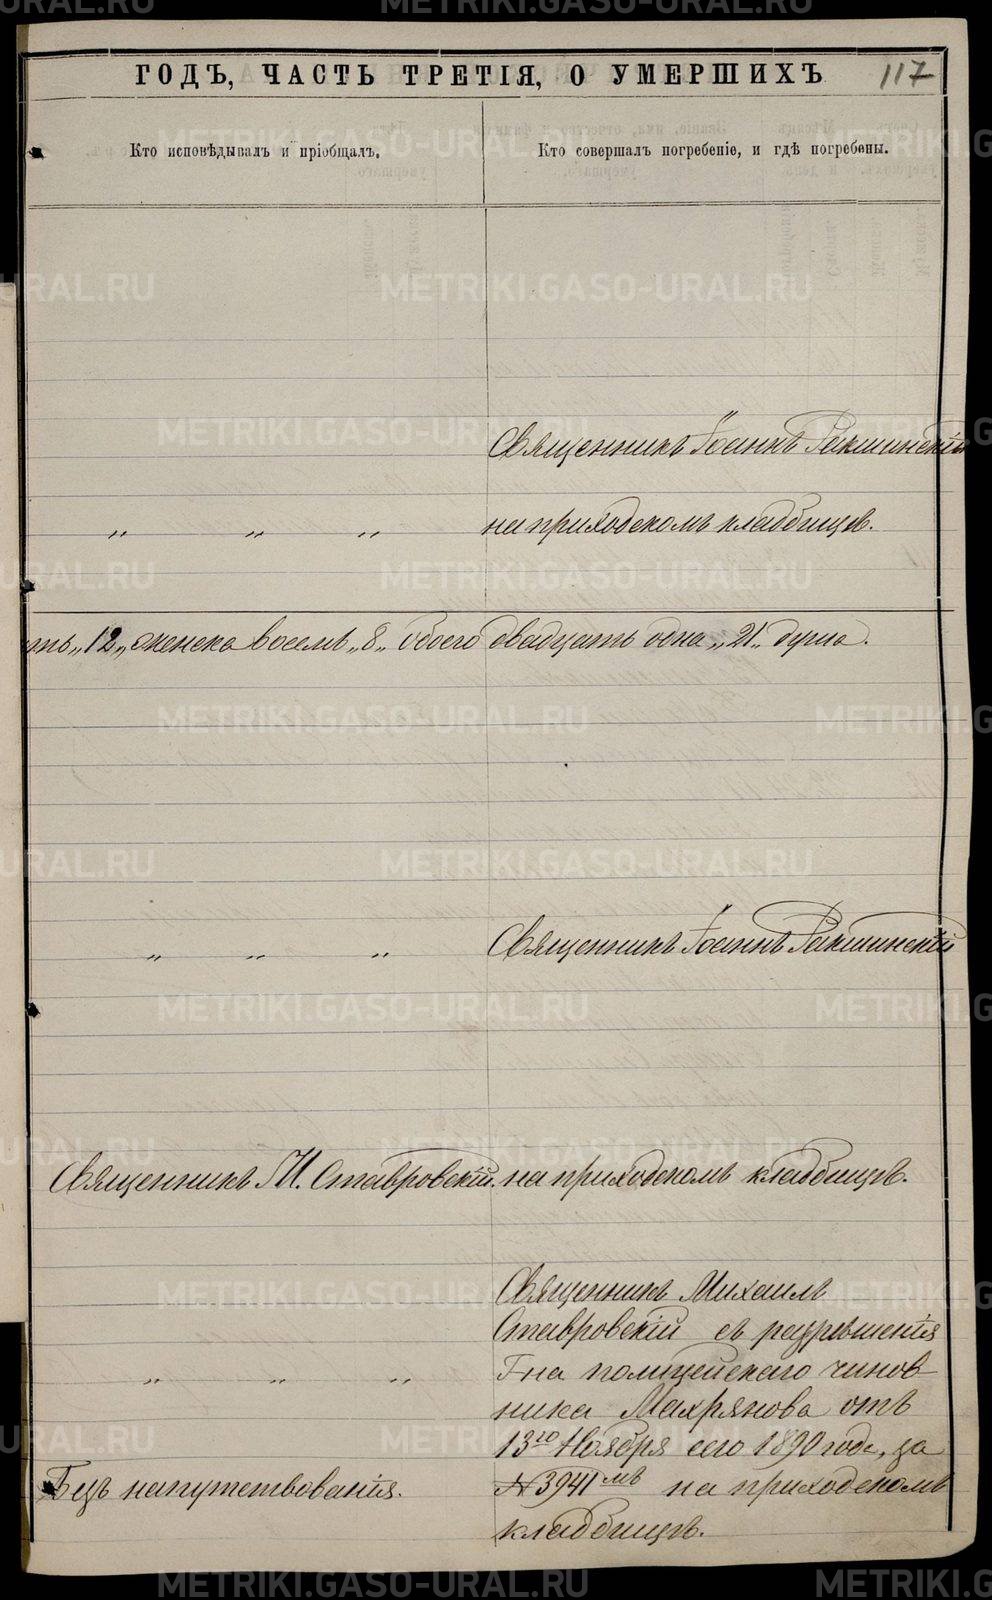 ГОДЪ, ЧАСТЬ ТРЕТІЯ, О УМЕРШИХЪ
117
Кто исповѣдывалъ и пріобщалъ.
Кто совершалъ погребеніе, и гдѣ погребены.
Священникъ Іоаннъ Ракшинскій
„ „ „ на приходскомъ кладбищѣ.
„12„ женска восемь „8„ обоего двадцать одна „21„ душа.
„ „ „ Священникъ Іоаннъ Ракшинскій
Священникъ М. Ставровскій. на приходскомъ кладбищѣ.
Священникъ Михаилъ
Ставровскій съ разрѣшенія
„ „ „ Гна полицейскаго чинов
ника Махрянова отъ
13го Ноября сего 1890 года, за
Безъ напутствованія. №3941мъ на приходскомъ
кладбищѣ.
METRIKI.GASO-URAL.RU